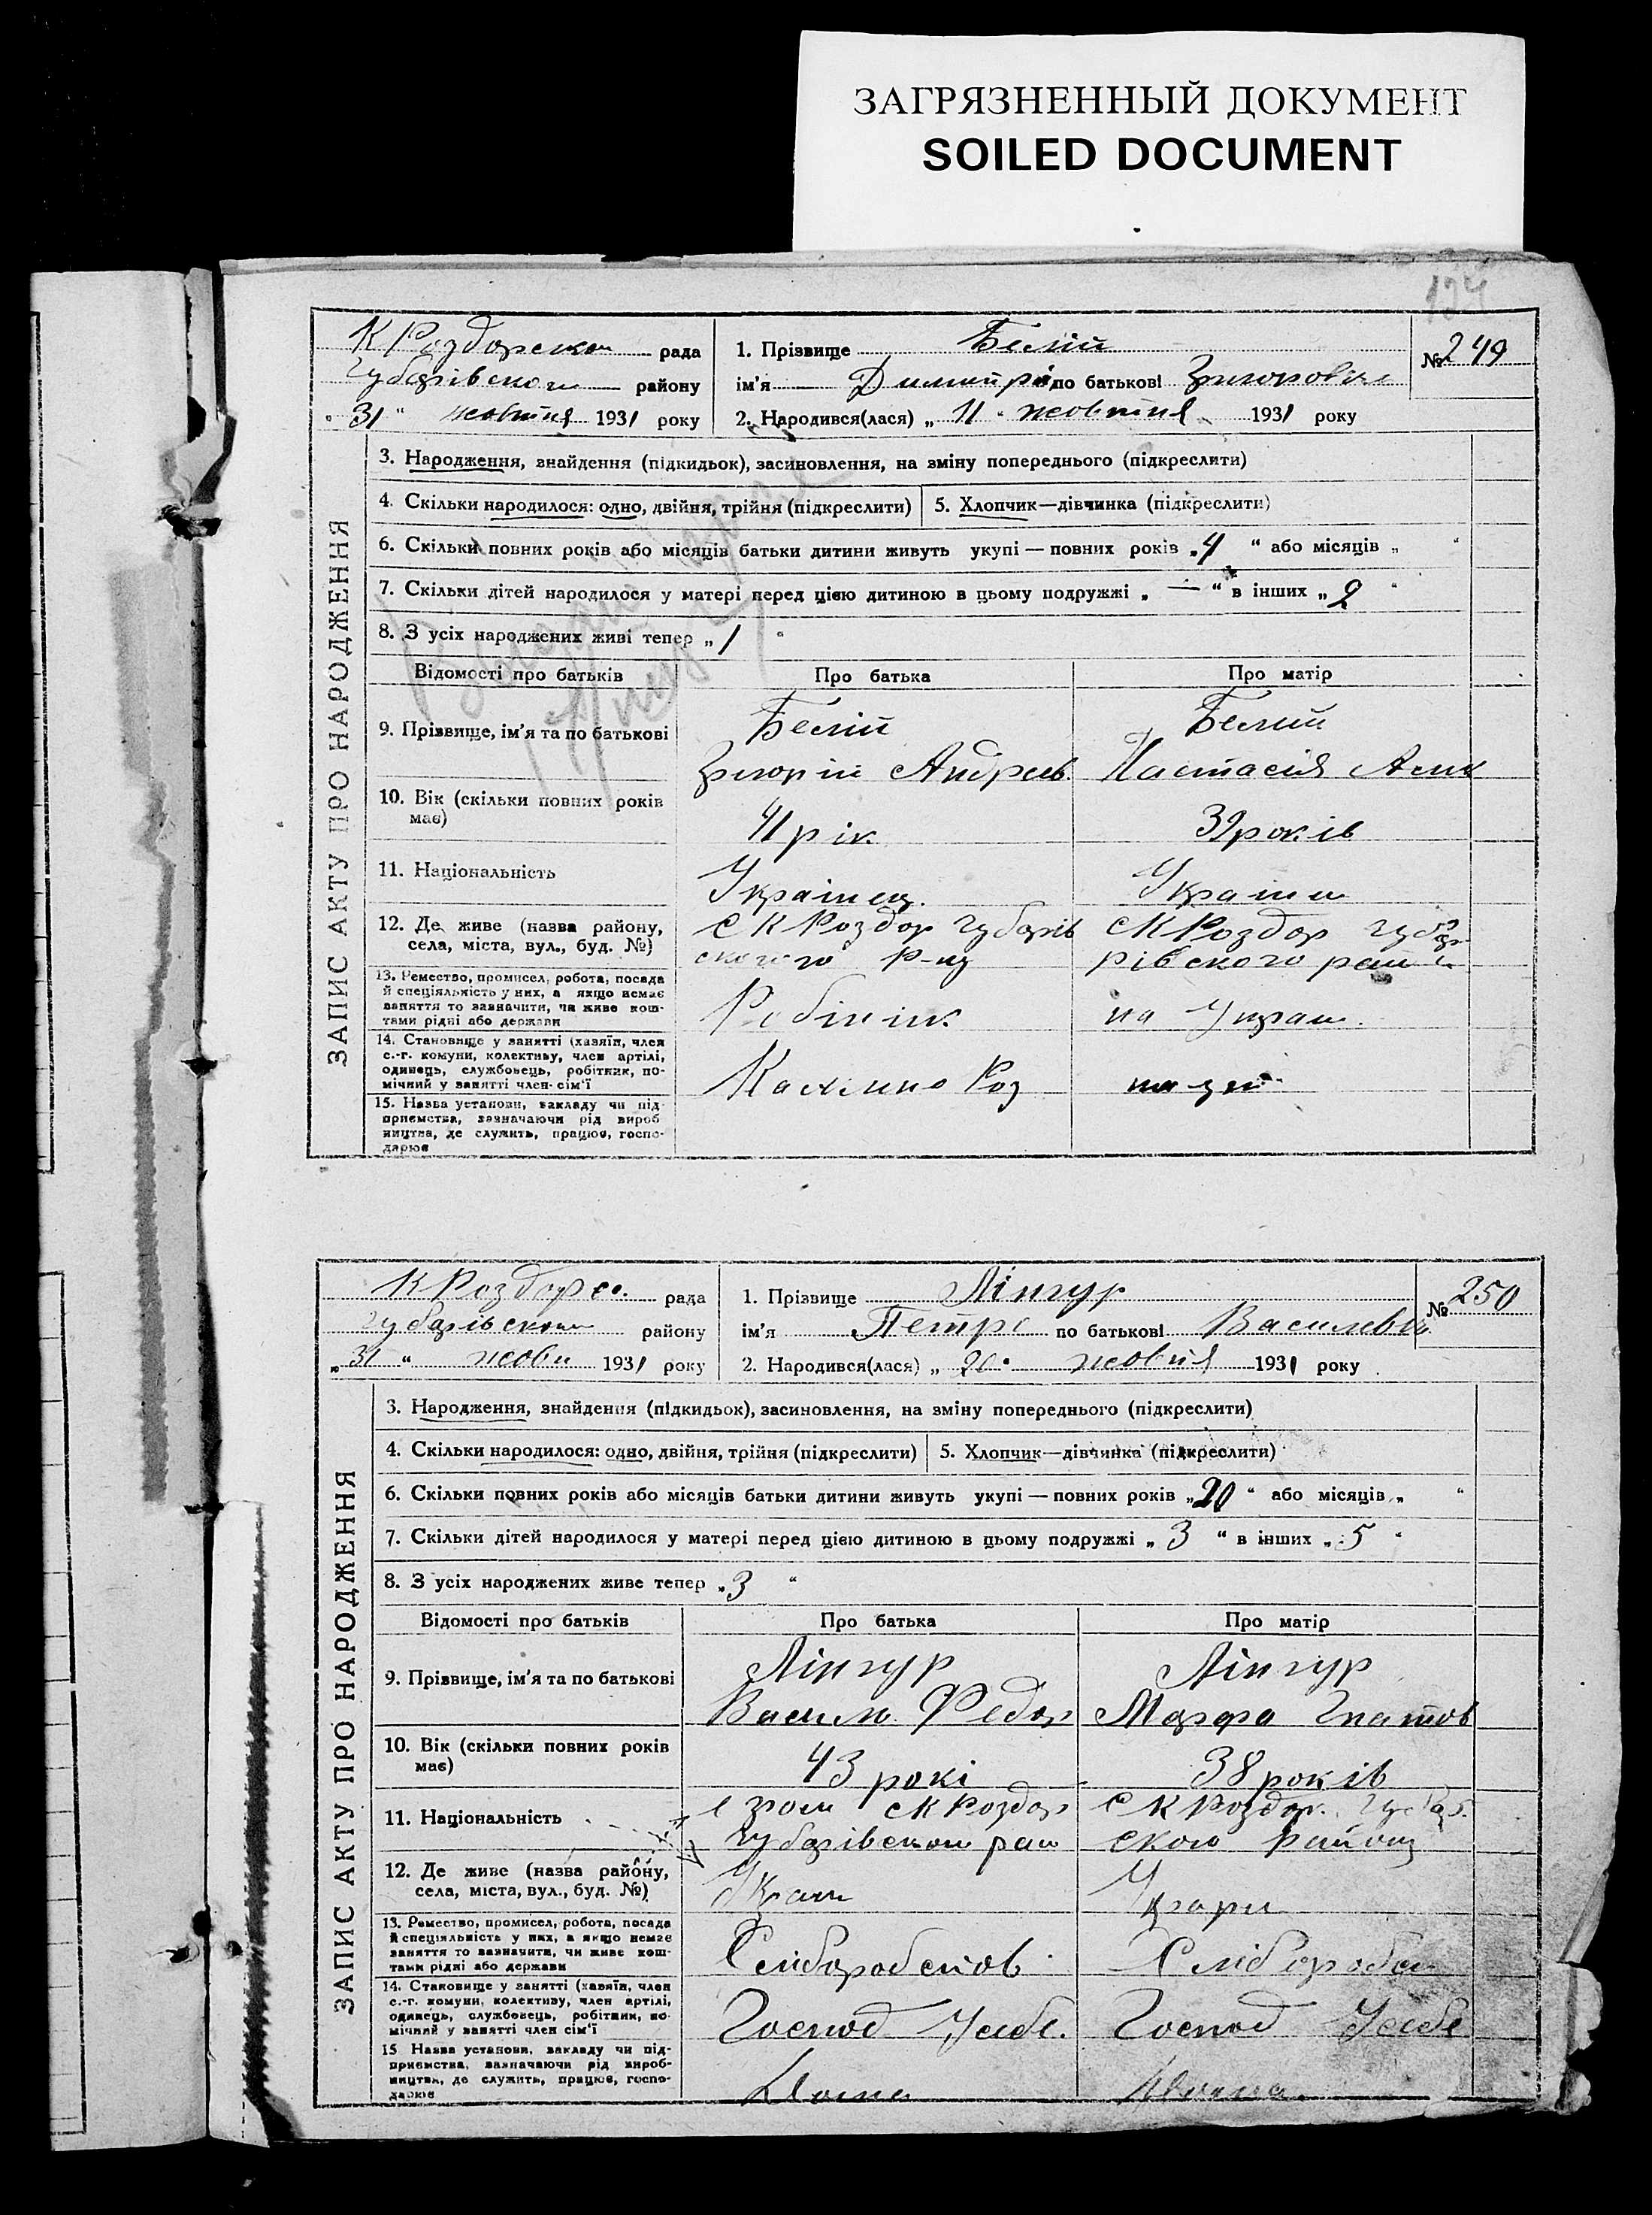 ЗАГРЯЗНЕННЫЙ ДОКУМЕНТ
SOILED DOCUMENT
124
К Роздорско рада
Губарівского району
„31“ жовтня 1931 року
1. Прізвище Белій
ім'я Димитрі по батькові Григорович
2. Народився(лася) „11“ жовтня 1931 року
№ 249
ЗАПИС АКТУ ПРО НАРОДЖЕННЯ
3. Народження, знайдення (підкидьок), засиновлення, на зміну попереднього (підкреслити)
4. Скільки народилося: одно, двійня, трійня (підкреслити) 5. Хлопчик—дівчинка (підкреслити)
6. Скільки повних років або місяців батьки дитини живуть укупі — повних років „4“ або місяців „ “
7. Скільки дітей народилося у матері перед цією дитиною в цьому подружжі „—“ в інших „2“
8. З усіх народжених живі тепер „1“
Відомості про батьків Про батька Про матір
9. Прізвище, ім'я та по батькові
Белій
Григорій Андреев.
Белий
Настасія
10. Вік (скільки повних років має)
41 рік
39 років
11. Національність
Українец.
Украин
12. Де живе (назва району, села, міста, вул., буд. №)
С К Роздор Губарів
ского Р-ну
С К Роздор Губа
рівского раи
13. Ремество, промисел, робота, посада й спеціяльність у них, а якщо немає заняття то зазначити, чи живе коштами рідні або держави
Робітник
на
14. Становище у занятті (хазяїн, член с.-г. комуни, колективу, член артілі, одинець, службовець, робітник, помічний у занятті член сім'ї
Роз
15. Назва установи, закладу чи підприємства, зазначаючи рід виробництва, де служить, працює, господарює
К Роздорсо. рада
Губарівского району
„31“ жовн 1931 року
1. Прізвище Лінгур
ім'я Петро по батькові Василеви
2. Народився(лася) „20“ жовтня 1931 року
№ 250
ЗАПИС АКТУ ПРО НАРОДЖЕННЯ
3. Народження, знайдення (підкидьок), засиновлення, на зміну попереднього (підкреслити)
4. Скільки народилося: одно, двійня, трійня (підкреслити) 5. Хлопчик—дівчинка (підкреслити)
6. Скільки повних років або місяців батьки дитини живуть укупі — повних років „20“ або місяців „ “
7. Скільки дітей народилося у матері перед цією дитиною в цьому подружжі „3“ в інших „5“
8. З усіх народжених живе тепер „3“
Відомості про батьків Про батька Про матір
9. Прізвище, ім'я та по батькові
Лінгур
Василь Федор
Лінгур
Марфа Гнатов
10. Вік (скільки повних років має)
43 рокі
38 років
11. Національність
С К Роздор
Губарівском раи
С К Роздор. Губар.
ского району
12. Де живе (назва району, села, міста, вул., буд. №)
Украи
13. Ремество, промисел, робота, посада й спеціяльність у них, а якщо немає заняття то зазначити, чи живе коштами рідні або держави
Хліборобство
Хлібороб
14. Становище у занятті (хазяїн, член с.-г. комуни, колективу, член артілі, одинець, службовець, робітник, помічний у занятті член сім'ї
Господ Усебе.
Господ Усебе
15 Назва установи, закладу чи підприємства, зазначаючи рід виробництва, де служить, працює, господарює
Дома
Дома